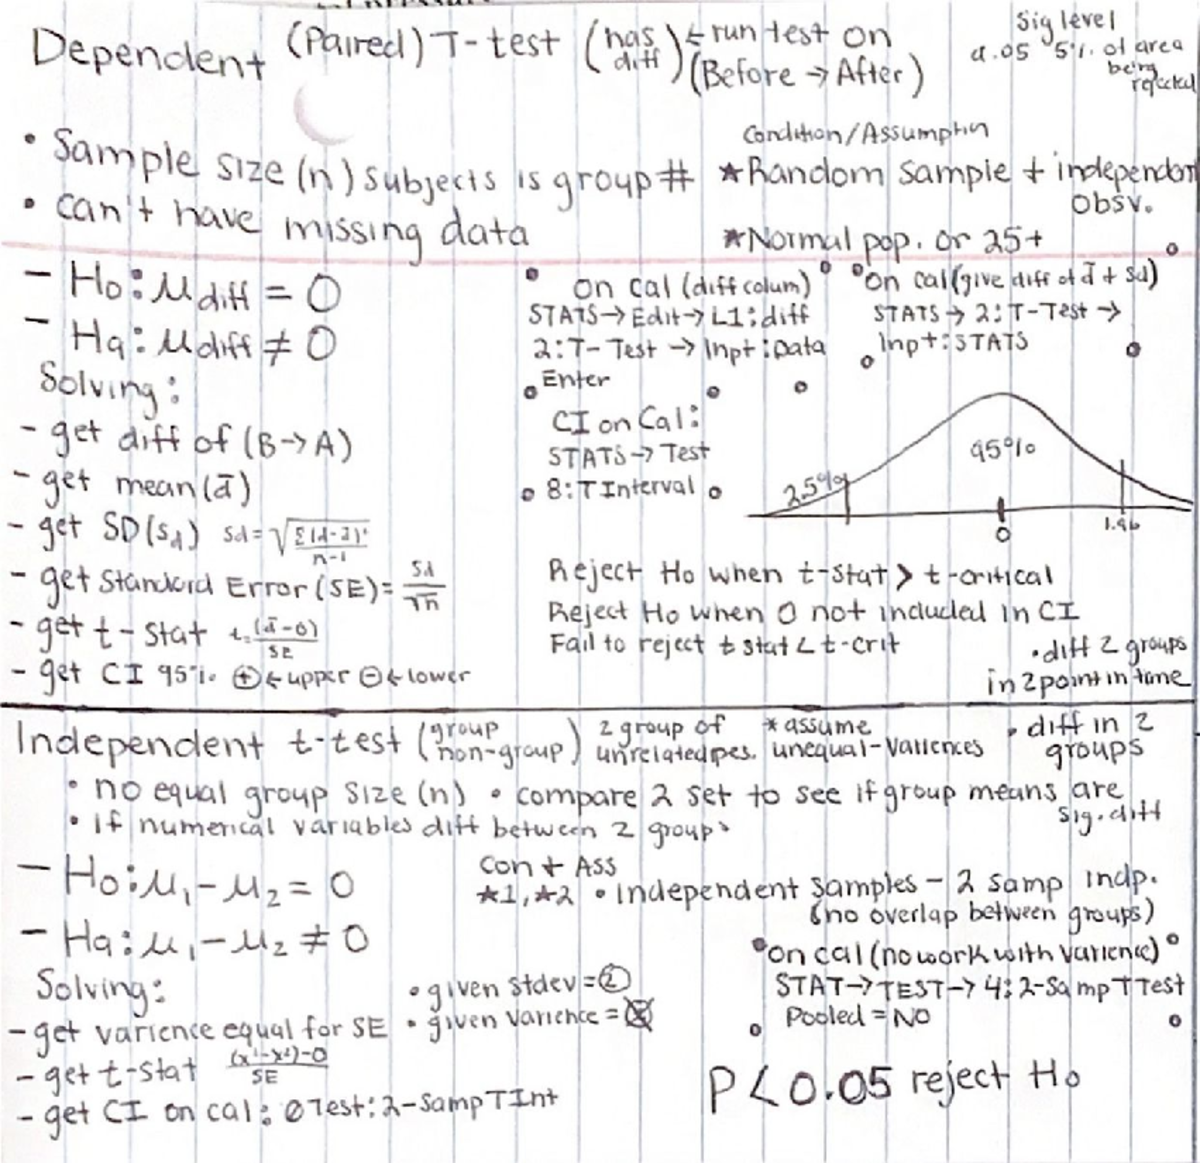 Dependent (Paired) T-test (has diff) ← run test on (Before → After)
Sig level
α .05 5% of area being rejected
• Sample size (n) subjects is group #
• can't have missing data
Condition/Assumption
★Random Sample + independent obsv.
★Normal pop. or 25+
- Ho: μdiff = 0
- Ha: μdiff ≠ 0
Solving:
- get diff of (B→A)
- get mean (d̄)
- get SD (sd) sd = √Σ(d-d̄)²/n-1
- get Standard Error (SE) = sd/√n
- get t-stat t = (d̄-0)/SE
- get CI 95% ⊕←upper ⊖←lower
• on cal (diff colum)
STATS→Edit→L1:diff
2:T-Test →Inpt:Data
Enter
CI on Cal:
STATS→Test
8:TInterval
on cal (give diff of d̄ + sd)
STATS → 2:T-Test →
Inpt:STATS
2.5%
95%
0
1.96
Reject Ho when t-stat > t-critical
Reject Ho when 0 not included in CI
Fail to reject t stat < t-crit
• diff 2 groups
in 2 point in time
Independent t-test (group non-group) 2 group of unrelated pes. *assume unequal-variences
• diff in 2 groups
• no equal group size (n) • compare 2 set to see if group means are sig. diff
• if numerical variables diff between 2 groups
- Ho: μ1 - μ2 = 0
- Ha: μ1 - μ2 ≠ 0
con + Ass
★1, ★2 • Independent samples - 2 samp indp.
(no overlap between groups)
Solving:
- get varience equal for SE
- get t-stat (x¹-x²)-0/SE
- get CI on cal: 0 Test: 2-SampTInt
• given stdev =
• given varience =
on cal (no work with varience)
STAT→TEST→4:2-SampTTest
Pooled = NO
P < 0.05 reject Ho